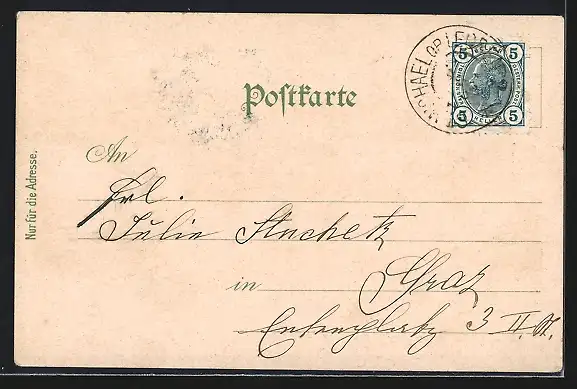 Postkarte
MICHAEL OB LEOBEN
5 5
5 5
An
Frl.
Julie Stuchetz
in Graz
3 II. St.
Nur für die Adresse.